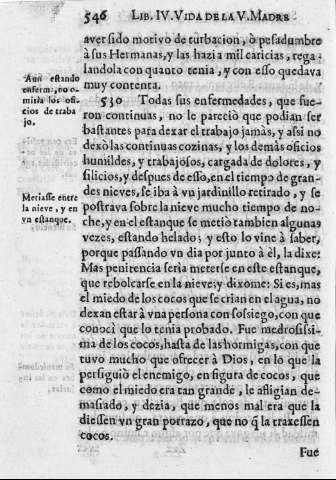 546 LIB. IV. VIDA DE LA V. MADRE
aver sido motivo de turbacion, ò pesadumbre
à sus Hermanas, y las hazia mil caricias, rega-
landola con quanto tenia, y con esso quedava
muy contenta.
Aun estando
enferma, no o-
mitia los ofi-
cios de traba
jo.
530 Todas sus enfermedades, que fue-
ron continuas, no le pareciò que podian ser
bastantes para dexar el trabajo jamàs, y assi no
dexò las continuas cozinas, y los demàs oficios
humildes, y trabajosos, cargada de dolores, y
silicios, y despues de esso, en el tiempo de gran-
des nieves, se iba à vn jardinillo retirado, y se
Metiasse entre
la nieve, y en
vn estanque.
postrava sobre la nieve mucho tiempo de no-
che, y en el estanque se metiò tambien algunas
vezes, estando helado; y esto lo vine à saber,
porque passando vn dia por junto à èl, la dixe:
Mas penitencia seria meterse en este estanque,
que rebolcarse en la nieve: y dixome: Si es, mas
el miedo de los cocos que se crian en el agua, no
dexan estàr à vna persona con sossiego, con que
conocì que lo tenia probado. Fue medrosissi-
ma de los cocos, hasta de las hormigas, con que
tuvo mucho que ofrecer à Dios, en lo que la
persiguiò el enemigo, en figura de cocos, que
como el miedo era tan grande, le afligian de-
masiado, y dezia, que menos mal era que la
diessen vn gran porrazo, que no q̃ la traxessen
cocos.
Fue